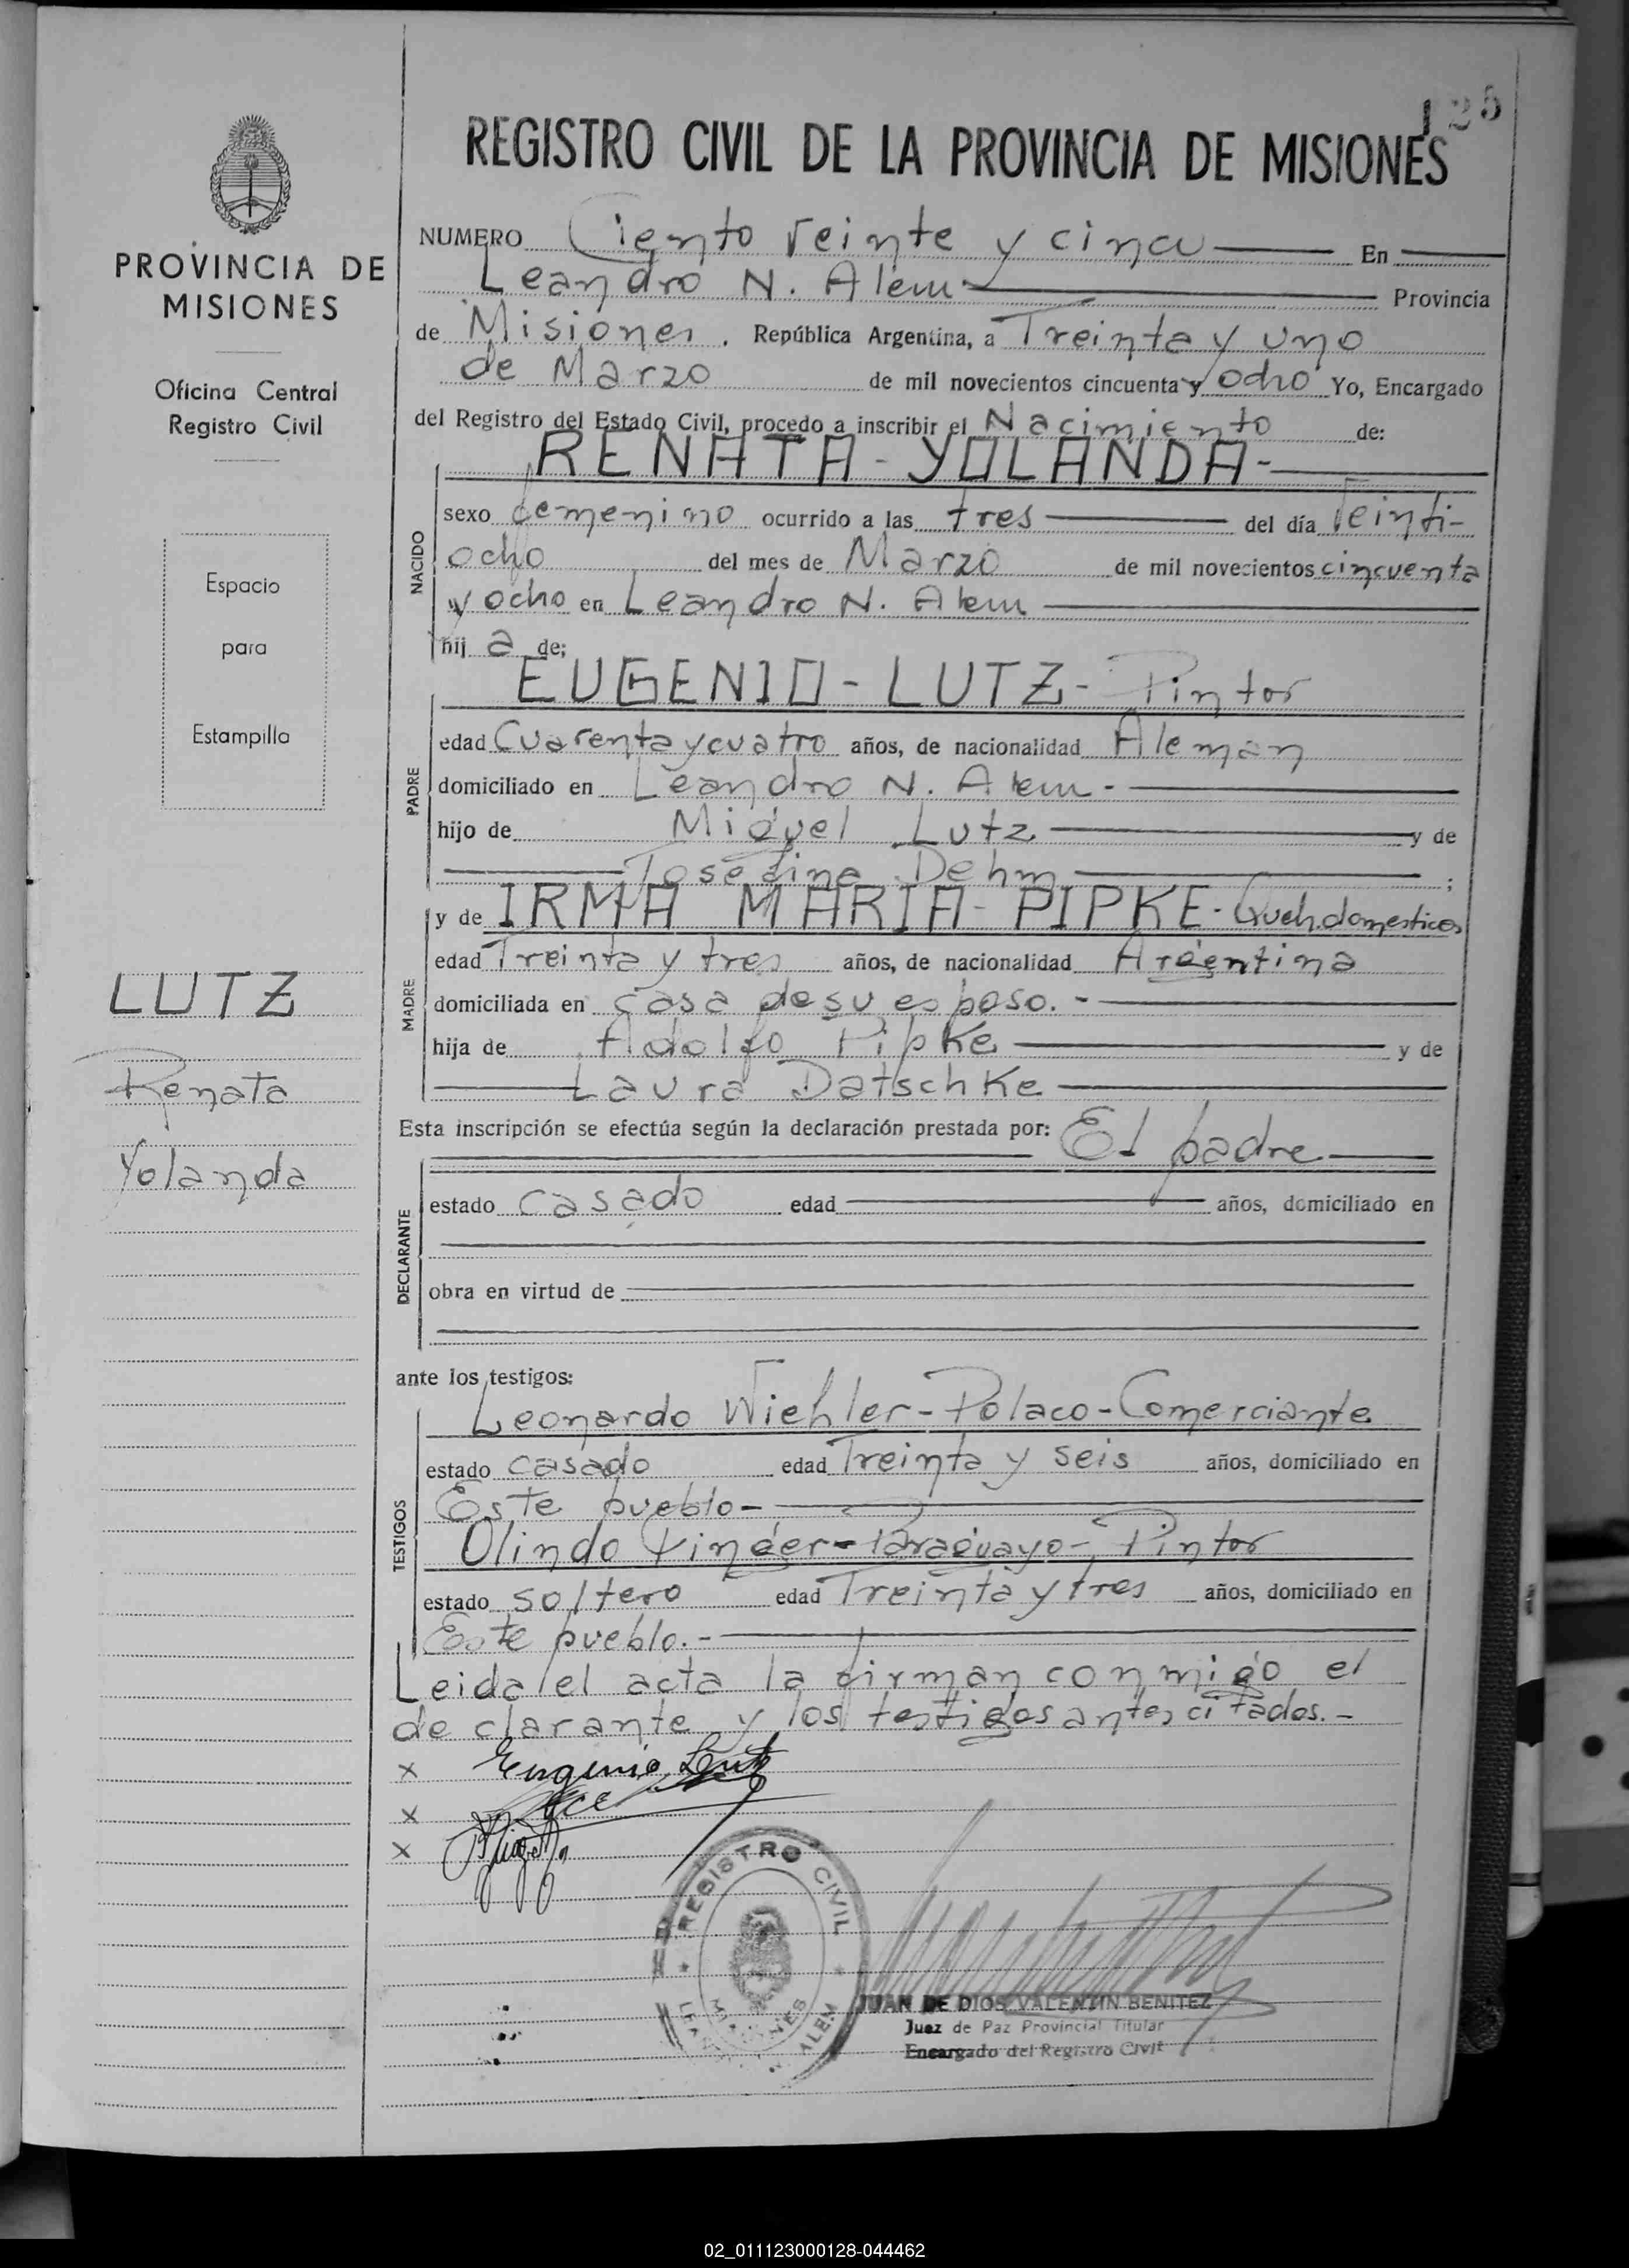 125
REGISTRO CIVIL DE LA PROVINCIA DE MISIONES
PROVINCIA DE
MISIONES
Oficina Central
Registro Civil
Espacio
para
Estampilla
LUTZ
Renata
Yolanda
NUMERO Ciento veinte y cinco En
Leandro N. Alem Provincia
de Misiones. República Argentina, a Treinta y uno
de Marzo de mil novecientos cincuenta y ocho Yo, Encargado
del Registro del Estado Civil, procedo a inscribir el Nacimiento de:
RENATA - YOLANDA -
NACIDO
sexo femenino ocurrido a las tres del día Veinti-
ocho del mes de Marzo de mil novecientos cincuenta
y ocho en Leandro N. Alem
hij a de;
EUGENIO - LUTZ - Pintor
PADRE
edad Cuarenta y cuatro años, de nacionalidad Aleman
domiciliado en Leandro N. Alem. -
hijo de Miguel Lutz y de
Josefina Dehm ;
y de IRMA MARIA - PIPKE - Queh. domesticos
MADRE
edad Treinta y tres años, de nacionalidad Argentina
domiciliada en casa de su esposo. -
hija de Adolfo Pipke y de
Laura Datschke
Esta inscripción se efectúa según la declaración prestada por: El padre
DECLARANTE
estado casado edad años, domiciliado en
obra en virtud de
ante los testigos:
TESTIGOS
Leonardo Wiehler - Polaco - Comerciante
estado casado edad Treinta y seis años, domiciliado en
Este pueblo -
Olindo - Paraguayo - Pintor
estado soltero edad Treinta y tres años, domiciliado en
Este pueblo. -
Leida el acta la firman conmigo el
declarante y los testigos antes citados. -
x Eugenio Lutz
x
x
REGISTRO CIVIL
MISIONES
LEANDRO N. ALEM
JUAN DE DIOS VALENTIN BENITEZ
Juez de Paz Provincial Titular
Encargado del Registro Civil
02_011123000128-044462